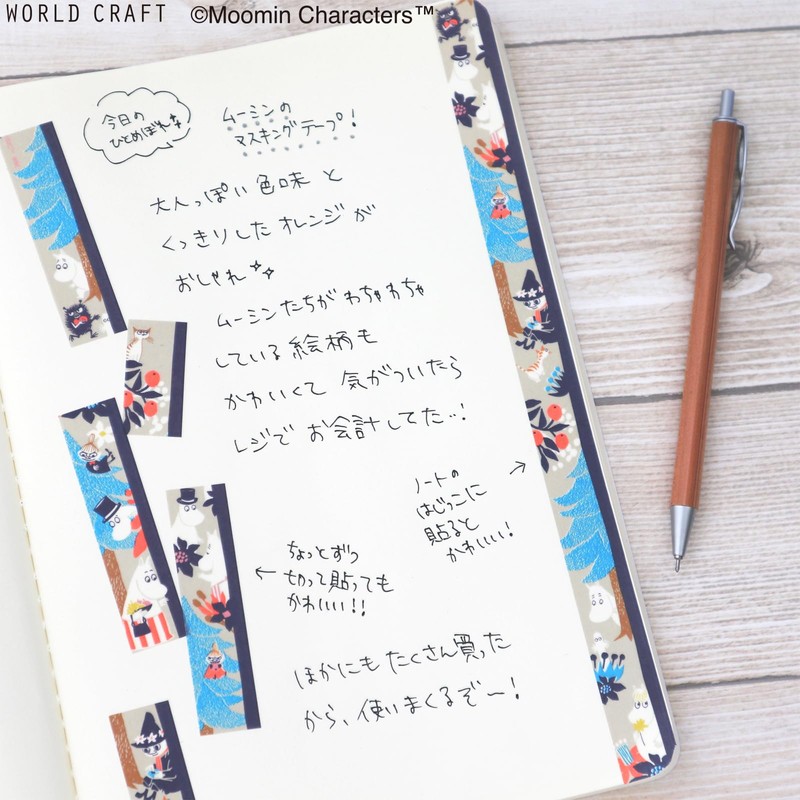 WORLD CRAFT ©Moomin Characters™
今日の
ひとめぼれ
ムーミンの
マスキングテープ!
大人っぽい色味と
くっきりしたオレンジが
おしゃれ
ムーミンたちがわちゃわちゃ
している絵柄も
かわいくて 気がついたら
レジでお会計してた…!
ノートの
はじっこに
貼ると
かわいい!
ちょっとずつ
切って貼っても
かわいい!!
ほかにもたくさん買った
から、使いまくるぞ〜!